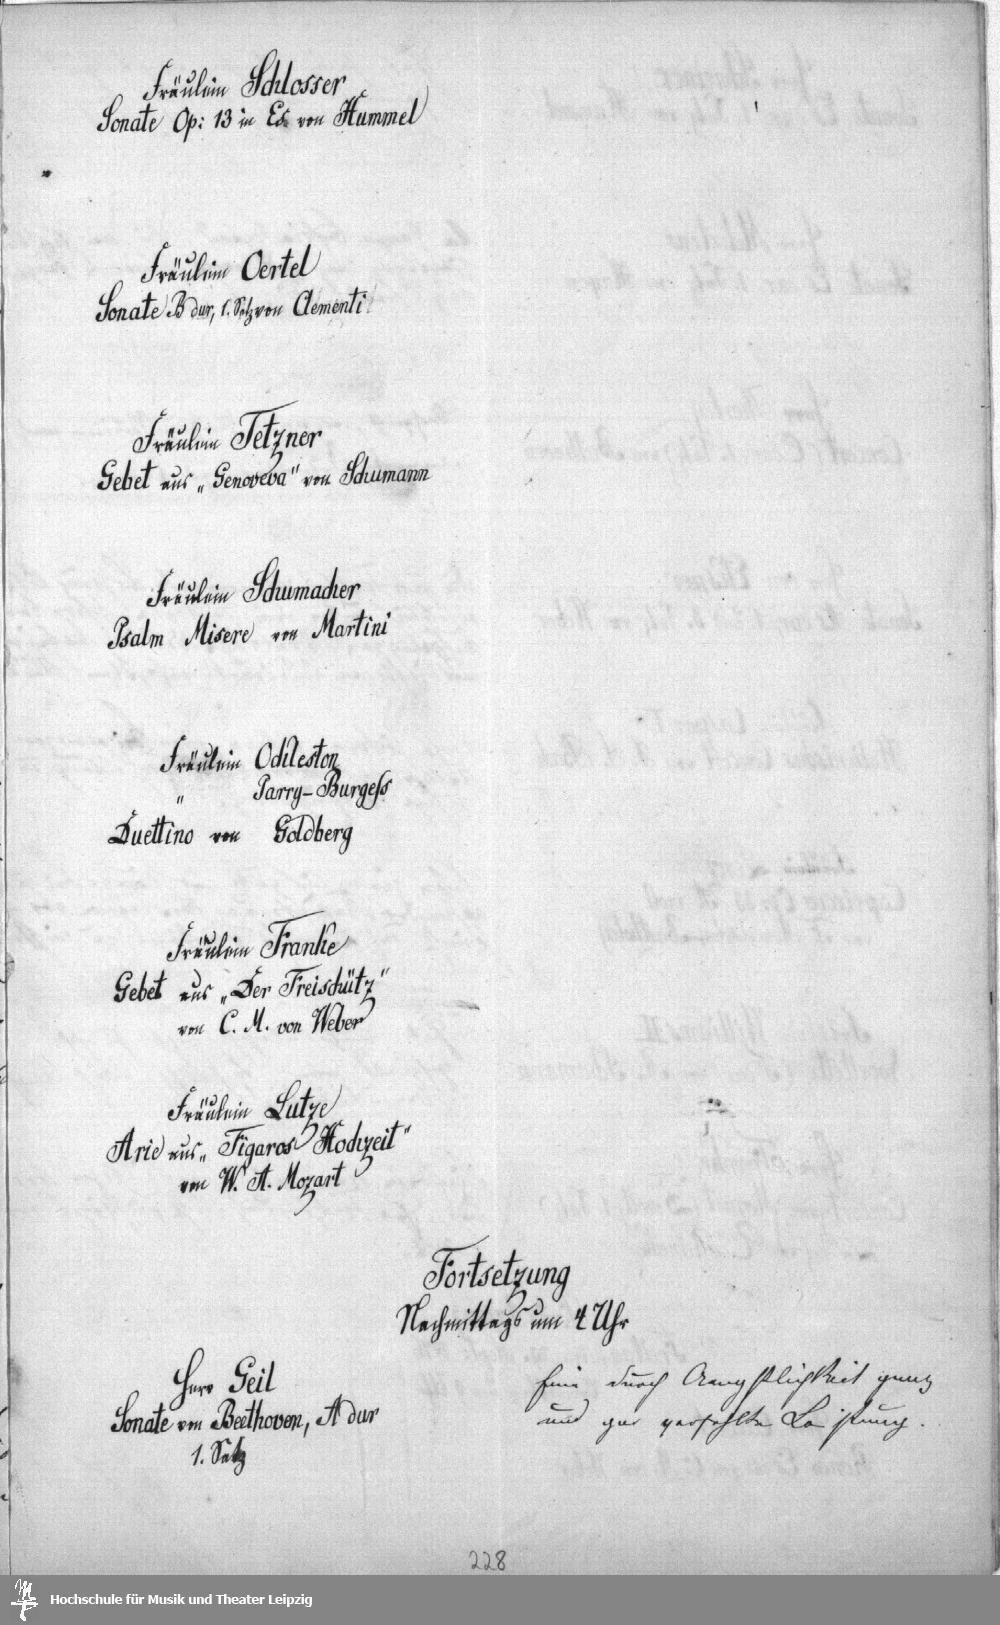 Fräulein Schlosser
Sonate Op: 13 in Es von Hummel
Fräulein Oertel
Sonate B dur, 1. Satz von Clementi
Fräulein Tetzner
Gebet aus „Genoveva" von Schumann
Fräulein Schumacher
Psalm Misere von Martini
Fräulein Odileston
" Parry-Burgess
Duettino von Goldberg
Fräulein Franke
Gebet aus „Der Freischütz"
von C. M. von Weber
Fräulein Lutze
Arie aus „Figaros Hochzeit"
von W. A. Mozart
Fortsetzung
Nachmittags um 4 Uhr
Herr Geil
Sonate von Beethoven, A dur
1. Satz
Eine durch Aengstlichkeit ganz
und gar verfehlte Leistung.
228
Hochschule für Musik und Theater Leipzig